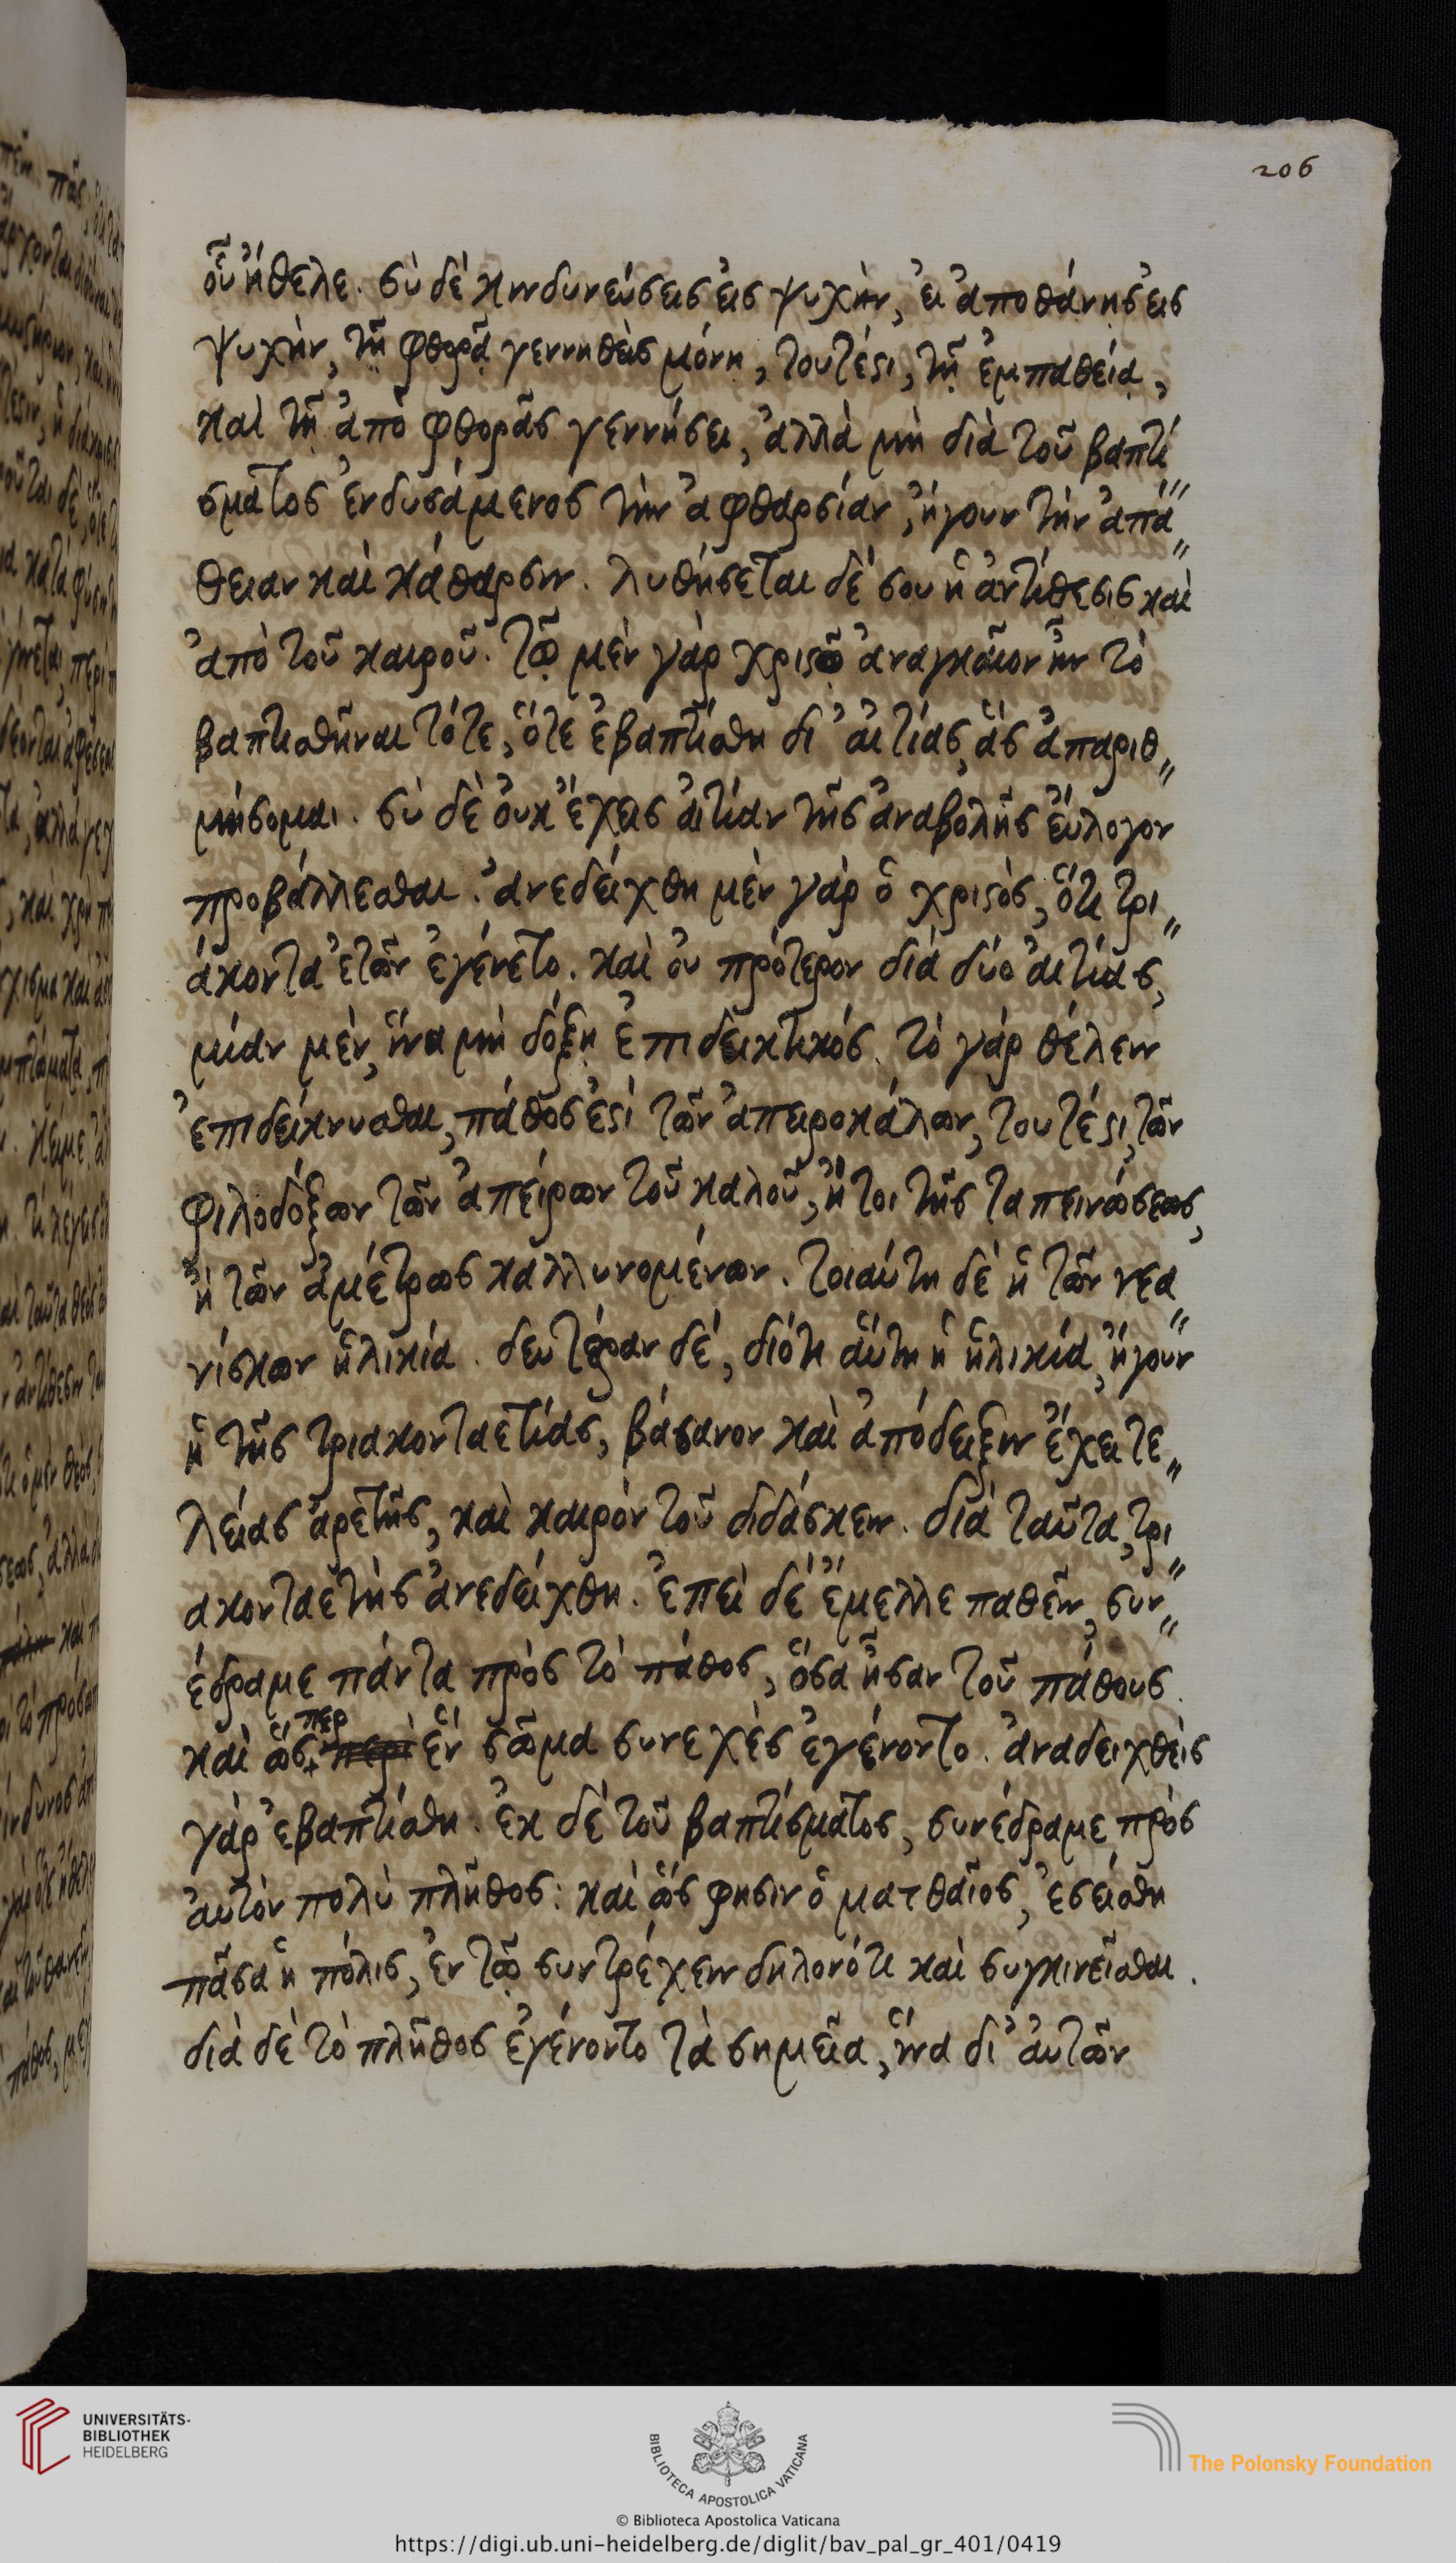 206
οὗ ἤθελε. σὺ δὲ κινδυνεύσεις εἰς ψυχὴν, εἰ ἀποθάνῃς εἰς
ψυχὴν, τῇ φθορᾷ γεννηθεὶς μόνῃ, τουτέστι, τῇ ἐμπαθείᾳ,
καὶ τῇ ἀπὸ φθορᾶς γεννήσει, ἀλλὰ μὴ διὰ τοῦ βαπτί
σματος ἐνδυσάμενος τὴν ἀφθαρσίαν, ἤγουν τὴν ἀπά„
θειαν καὶ κάθαρσιν. λυθήσεται δέ σου ἡ ἀντίθεσις καὶ
ἀπὸ τοῦ καιροῦ. τῷ μὲν γὰρ χριστῷ ἀναγκαῖον ἦν τὸ
βαπτισθῆναι τότε, ὅτε ἐβαπτίσθη δι᾽ αἰτίας, ἃς ἀπαριθ„
μήσομαι. σὺ δὲ οὐκ ἔχεις αἰτίαν τῆς ἀναβολῆς εὔλογον
προβάλλεσθαι. ἀνεδείχθη μὲν γὰρ ὁ χριστὸς, ὅτι τρι„
άκοντα ἐτῶν ἐγένετο. καὶ οὐ πρότερον διὰ δύο αἰτίας,
μίαν μὲν, ἵνα μὴ δόξῃ ἐπιδεικτικός. τὸ γὰρ θέλειν
ἐπιδείκνυσθαι, πάθος ἐστὶ τῶν ἀπειροκάλων, τουτέστι, τῶν
φιλοδόξων τῶν ἀπείρων τοῦ καλοῦ, ἤτοι τῆς ταπεινώσεως,
ἢ τῶν ἀμέτρως καλλυνομένων. τοιαύτη δὲ ἡ τῶν νεα„
νίσκων ἡλικία. δευτέραν δέ, διότι αὕτη ἡ ἡλικία, ἤγουν
ἡ τῆς τριακονταετίας, βάσανον καὶ ἀπόδειξιν ἔχει τε„
λείας ἀρετῆς, καὶ καιρὸν τοῦ διδάσκειν. διὰ ταῦτα, τρι„
ακονταετὴς ἀνεδείχθη. ἐπεὶ δὲ ἔμελλε παθεῖν, συν„
έδραμε πάντα πρὸς τὸ πάθος, ὅσα ἦσαν τοῦ πάθους.
καὶ ὥς περ περὶ ἓν σῶμα συνεχὲς ἐγένοντο. ἀναδειχθεὶς
γὰρ ἐβαπτίσθη. ἐκ δὲ τοῦ βαπτίσματος, συνέδραμε πρὸς
αὐτὸν πολὺ πλῆθος: καὶ ὥς φησιν ὁ ματθαῖος, ἐσείσθη
πᾶσα ἡ πόλις, ἐν τῷ συντρέχειν δηλονότι καὶ συγκινεῖσθαι.
διὰ δὲ τὸ πλῆθος ἐγένοντο τὰ σημεῖα, ἵνα δι᾽ αὐτῶν
UNIVERSITÄTS-
BIBLIOTHEK
HEIDELBERG
BIBLIOTECA APOSTOLICA VATICANA
The Polonsky Foundation
© Biblioteca Apostolica Vaticana
https://digi.ub.uni-heidelberg.de/diglit/bav_pal_gr_401/0419